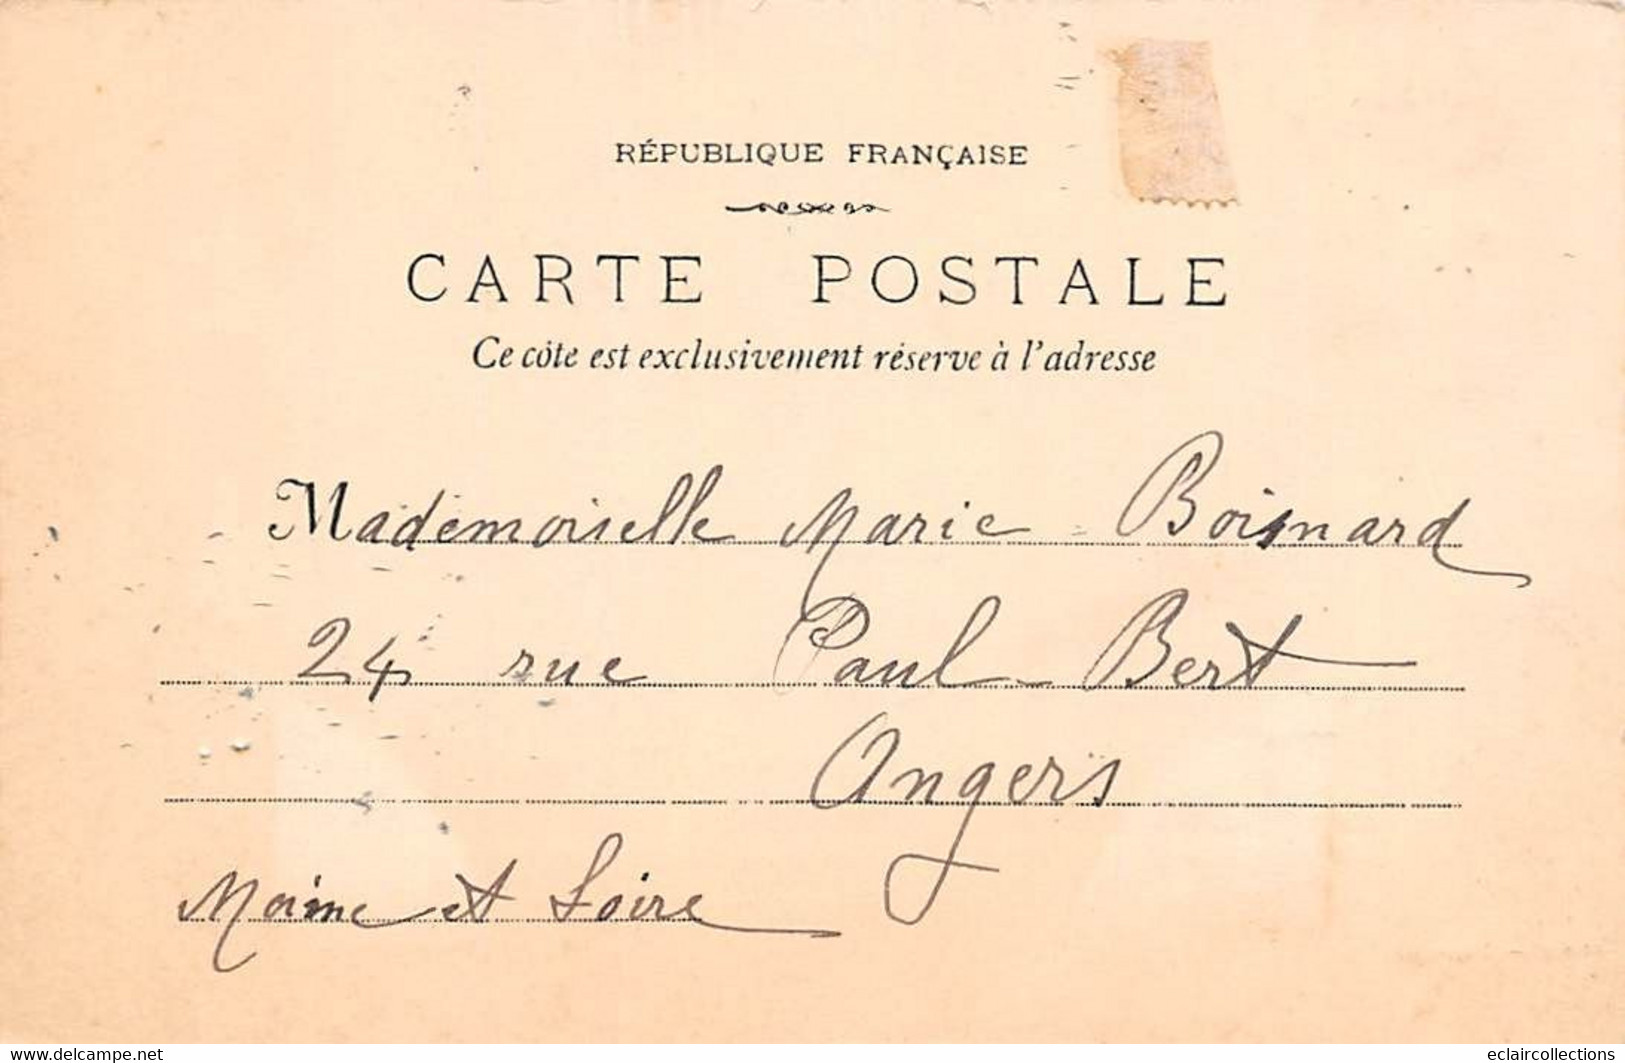 RÉPUBLIQUE FRANÇAISE
CARTE POSTALE
Ce côté est exclusivement réservé à l'adresse
Mademoiselle Marie Boisnard
24 rue Paul-Bert
Angers
Maine et Loire
www.delcampe.net
eclaircollections